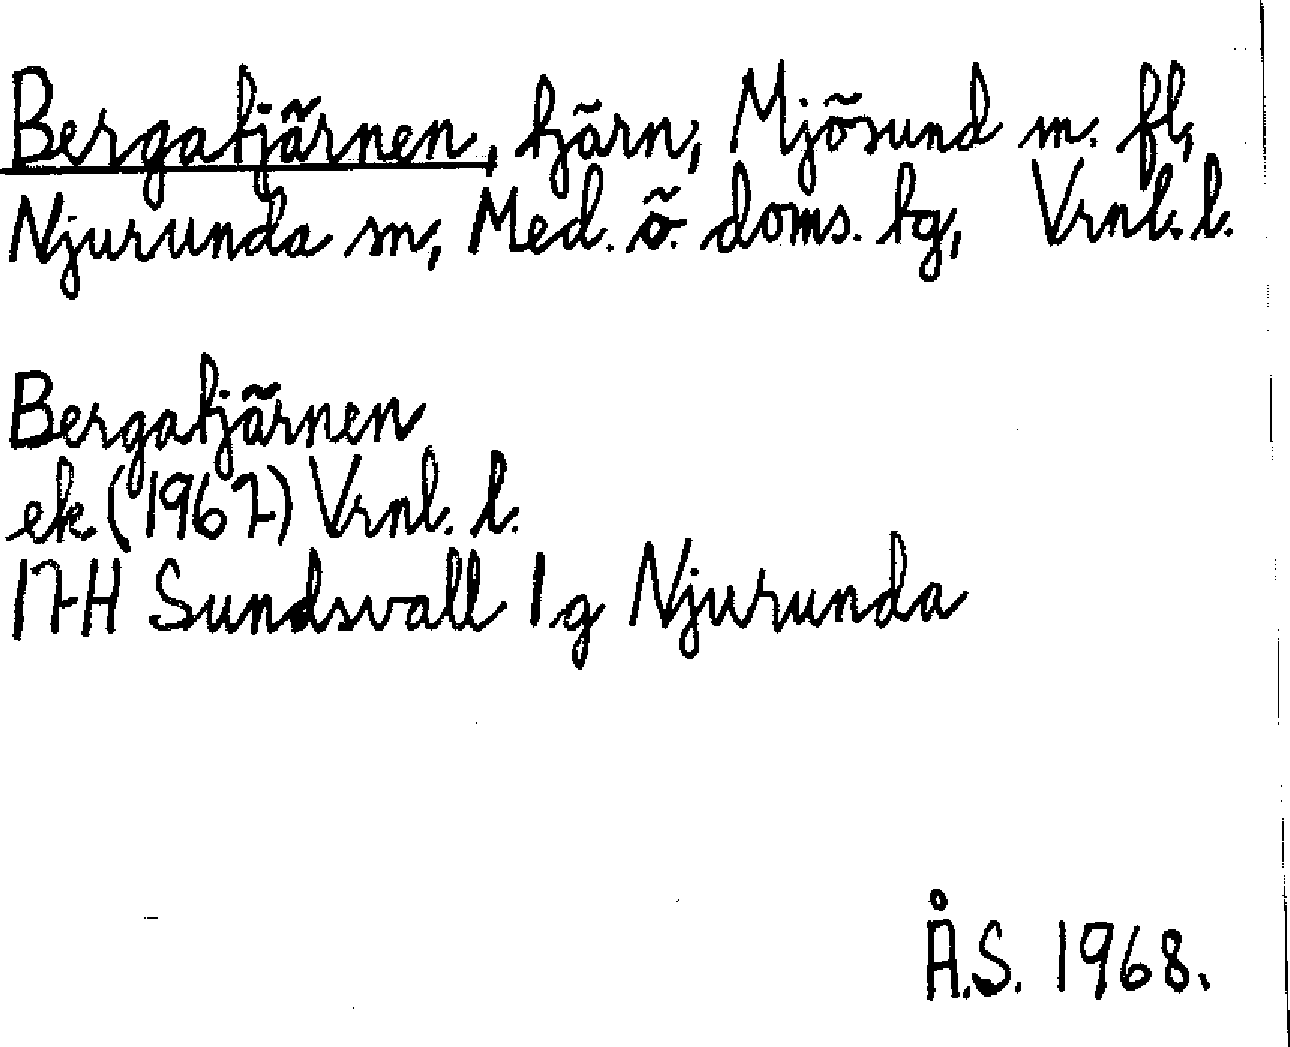 Bergatjärnen, tjärn, Mjösund m. fl,
Njurunda sn, Med. ö. doms. tg, Vrnl. l.
Bergatjärnen
ek (1967) Vrnl. l.
17H Sundsvall 1g Njurunda
Å.S. 1968.